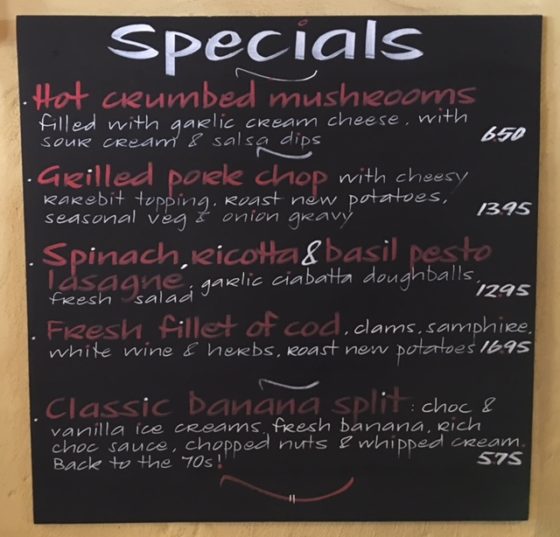 Specials
Hot crumbed mushrooms
filled with garlic cream cheese, with
sour cream & salsa dips 6.50
Grilled pork chop with cheesy
rarebit topping, roast new potatoes,
seasonal veg & onion gravy 13.95
Spinach, ricotta & basil pesto
lasagne, garlic ciabatta doughballs,
fresh salad 12.95
Fresh fillet of cod, clams, samphire,
white wine & herbs, roast new potatoes 16.95
Classic banana split: choc &
vanilla ice creams, fresh banana, rich
choc sauce, chopped nuts & whipped cream.
Back to the 70s! 5.75